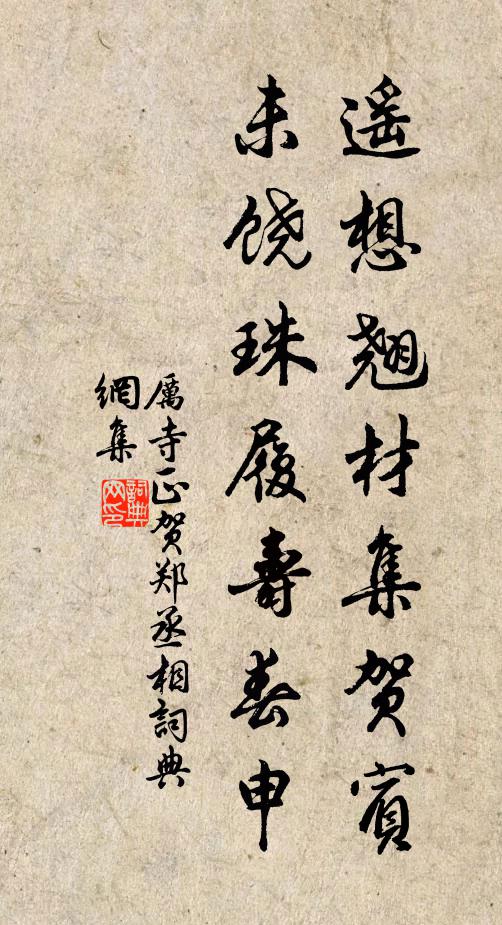 遥想翘材集贺宾
未饶珠履寿春申
厲寺正贺郑丞相詞典
網集
詞典
网印